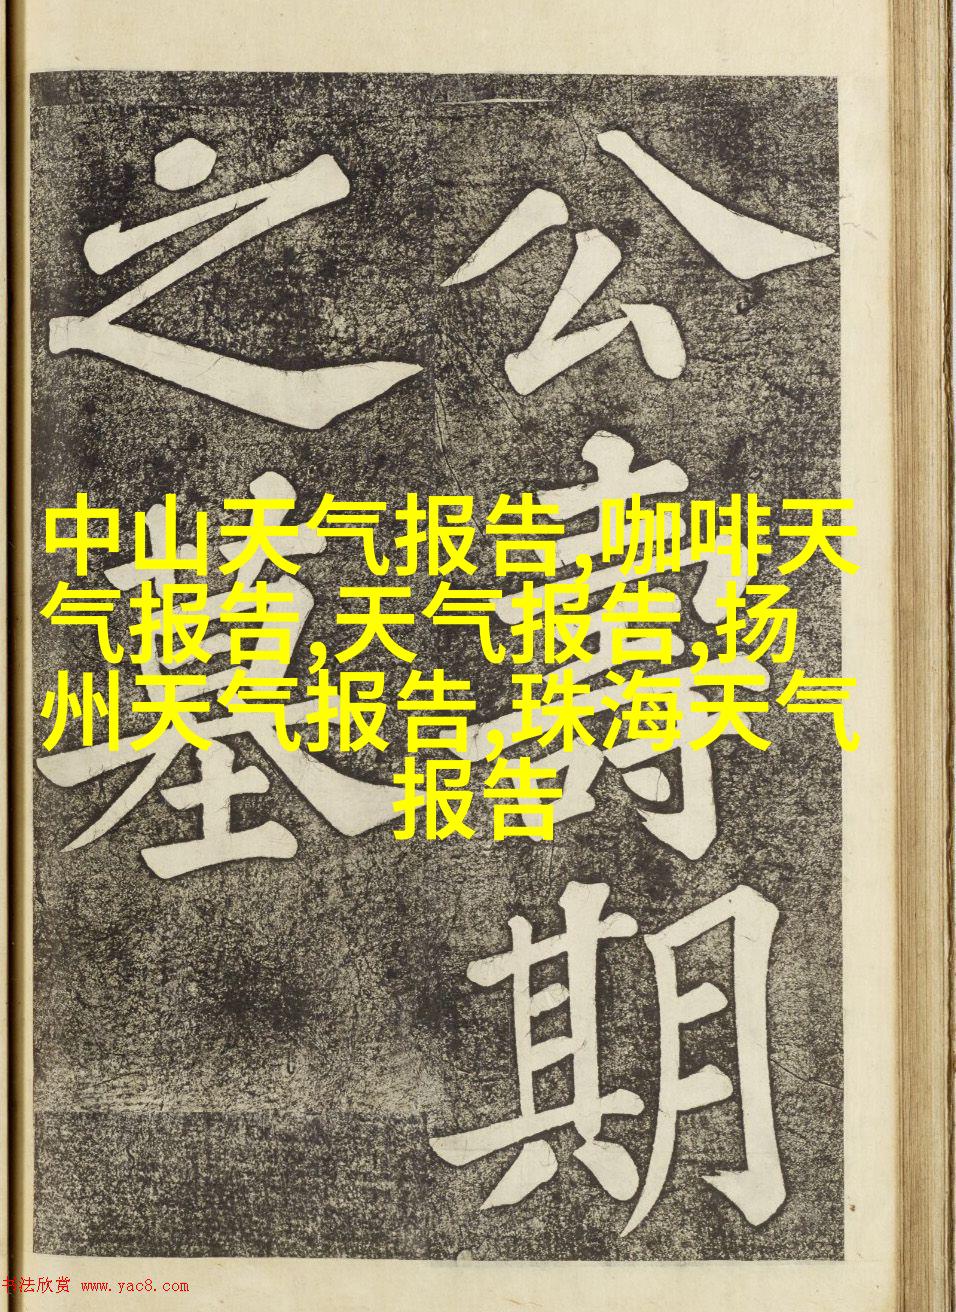 公壽期
之墓
中山天气报告,咖啡天
气报告,天气报告,扬
州天气报告,珠海天气
报告
书法欣赏 www.yac8.com